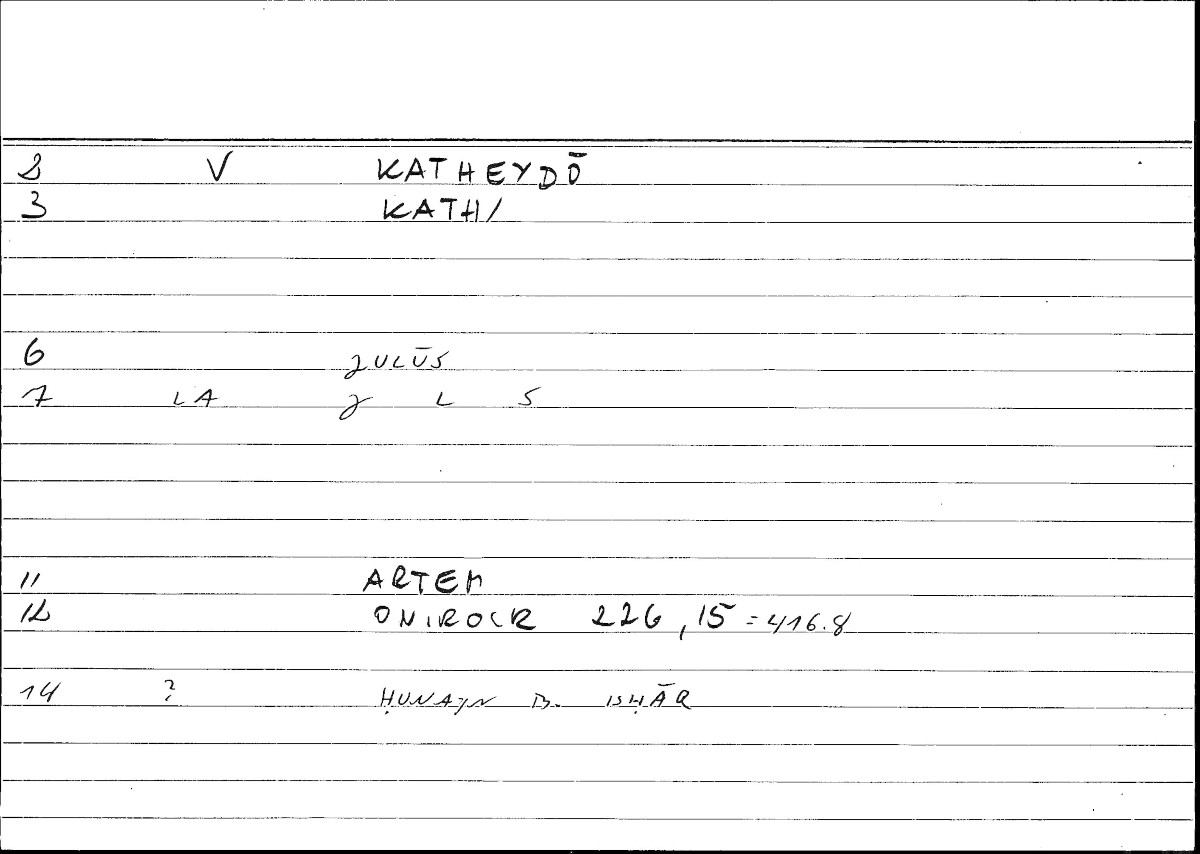 2 V KATHEYDŌ
3 KATH/
6 ʒULŪS
7 LA ʒ L S
11 ARTEM
12 ONIROCR 226,15 = 416.8
14 ? ḤUNAYN B. ISḤĀQ